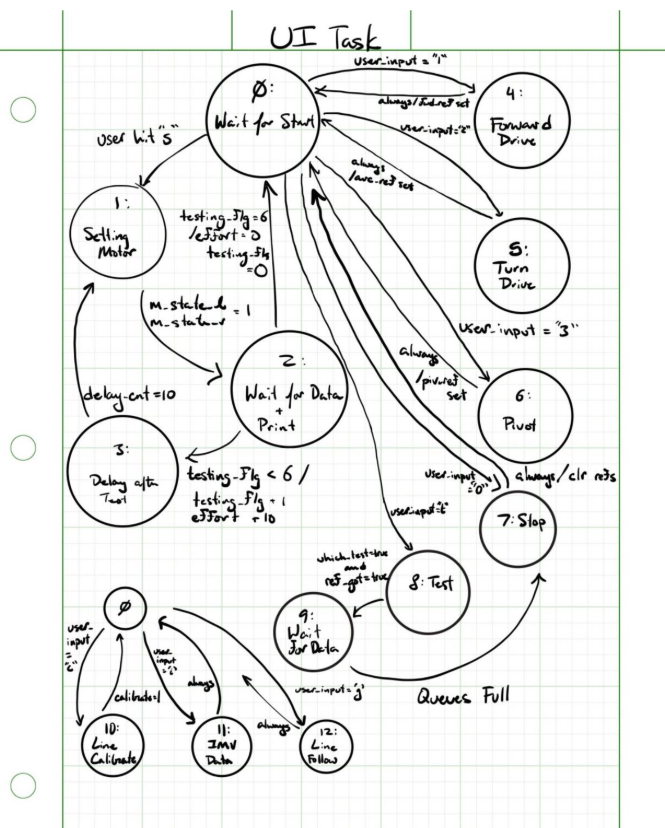 UI Task
user_input = "1"
0:
Wait for Start
4:
Forward
Drive
always/fwd_ref set
user_input="2"
user hit "s"
always
/arc_ref set
1:
Setting
Motor
testing_flg=6
/effort=0
testing_flg
=0
5:
Turn
Drive
m_state_l
m_state_r = 1
user_input = "3"
2:
Wait for Data
+
Print
always
/piv_ref
set
6:
Pivot
delay_cnt=10
3:
Delay after
Test
testing_flg < 6 /
testing_flg + 1
effort + 10
user_input
="0"
always/clr refs
7: Stop
user_input="t"
which_test=true
and
ref_got=true
8: Test
9:
Wait
for Data
0
user_
input
=
"c"
user_
input
="i"
calibrate=1
always
user_input="g"
Queues Full
always
10:
Line
Calibrate
11:
IMU
Data
12:
Line
Follow